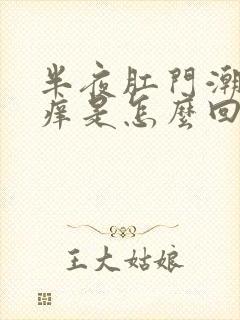 半夜肛門潮
痒是怎麼回
王大姑娘